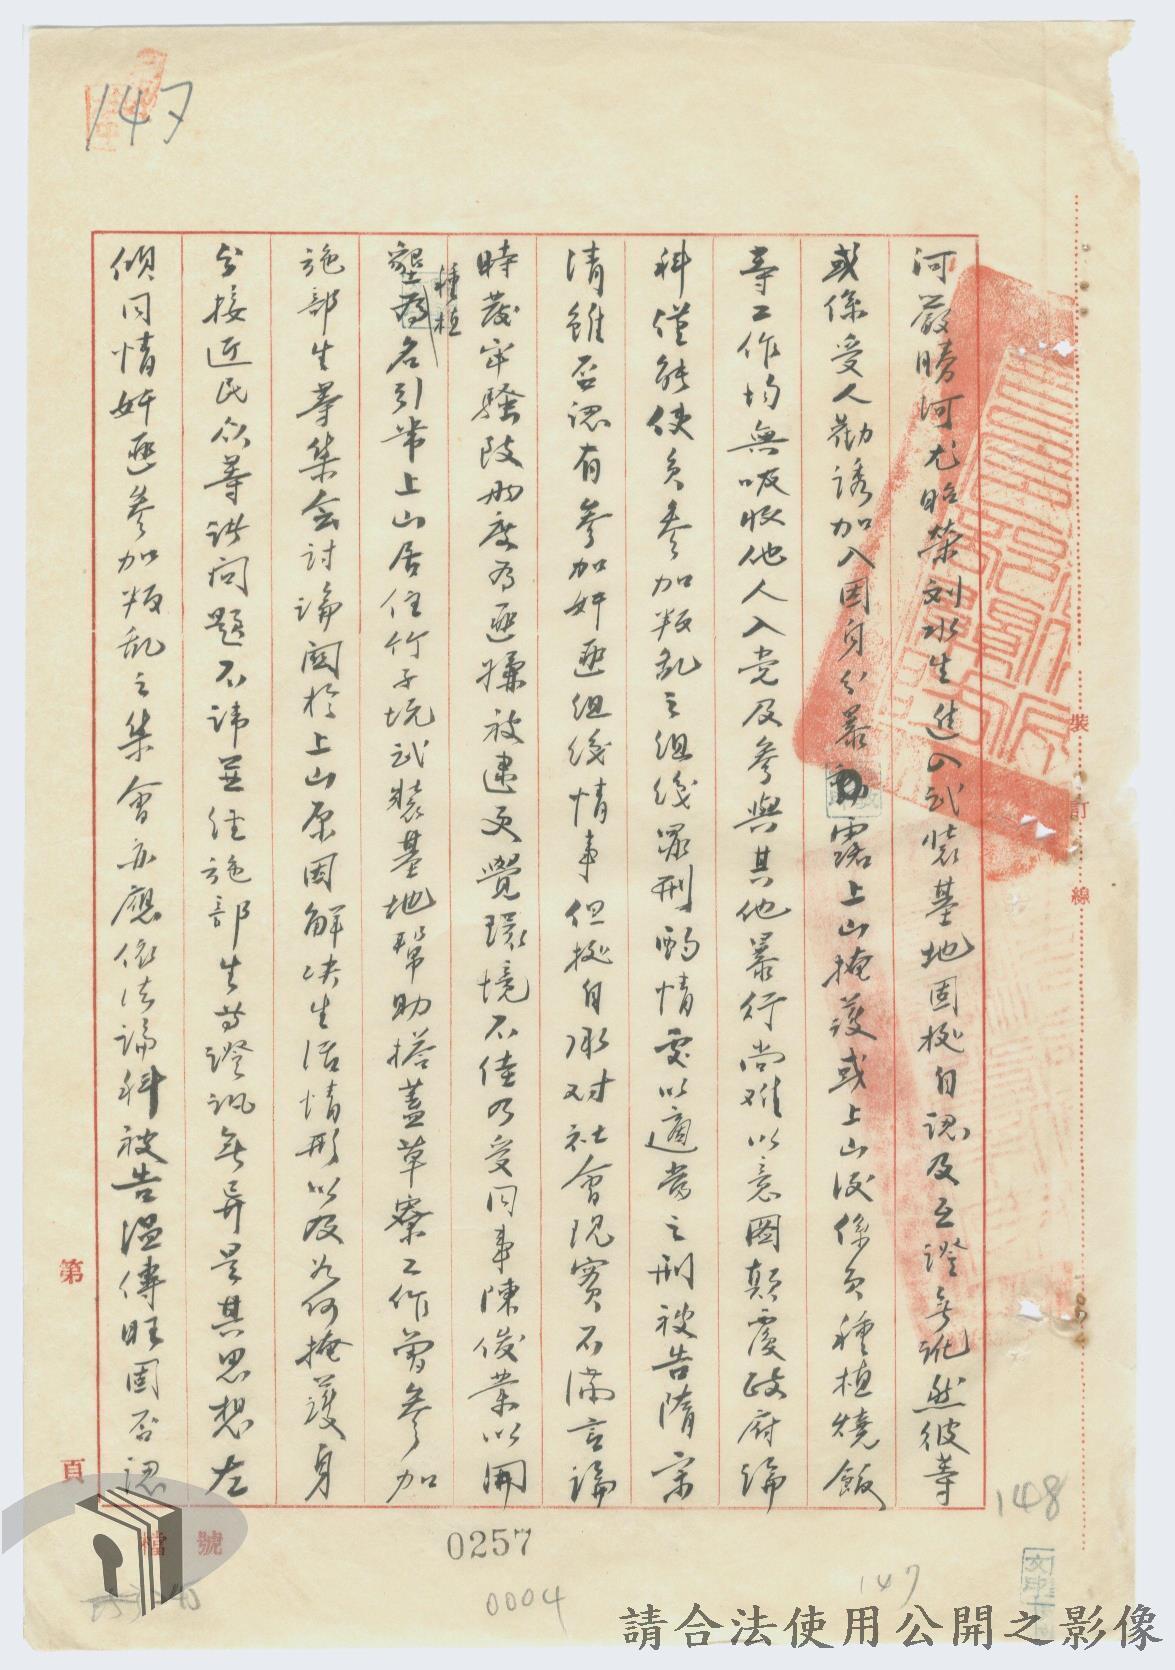 147
河嚴勝河尤昭榮刘水生進入武裝基地固挺自認及互證無訛然彼等
或係受人勸誘加入因身分暴露上山掩護或上山後係負種植燒飯
等工作均無吸收他人入党及參與其他暴行尚难以意圖顛覆政府論
科僅能使負參加叛乱之組織罪刑酌情處以適當之刑被告隋宗
清雖否認有參加奸匪組織情事但挺自承对社會現實不滿言論
時發牢騷致兩度為匪搜被逮更覺環境不佳乃受同事陳俊業以開
墾種植為名引带上山居住竹子坑武裝基地幫助搭蓋草寮工作曾參加
施部生等集会討論関於上山原因解決生活情形以及如何掩護身
分接近民众等諸問題不諱並經施部生等證訊無異是其思想左
傾同情奸匪參加叛乱之集會亦應依法論科被告温傳旺固否認
裝
訂
線
第
頁
檔號
148
0257
0004
147
請合法使用公開之影像